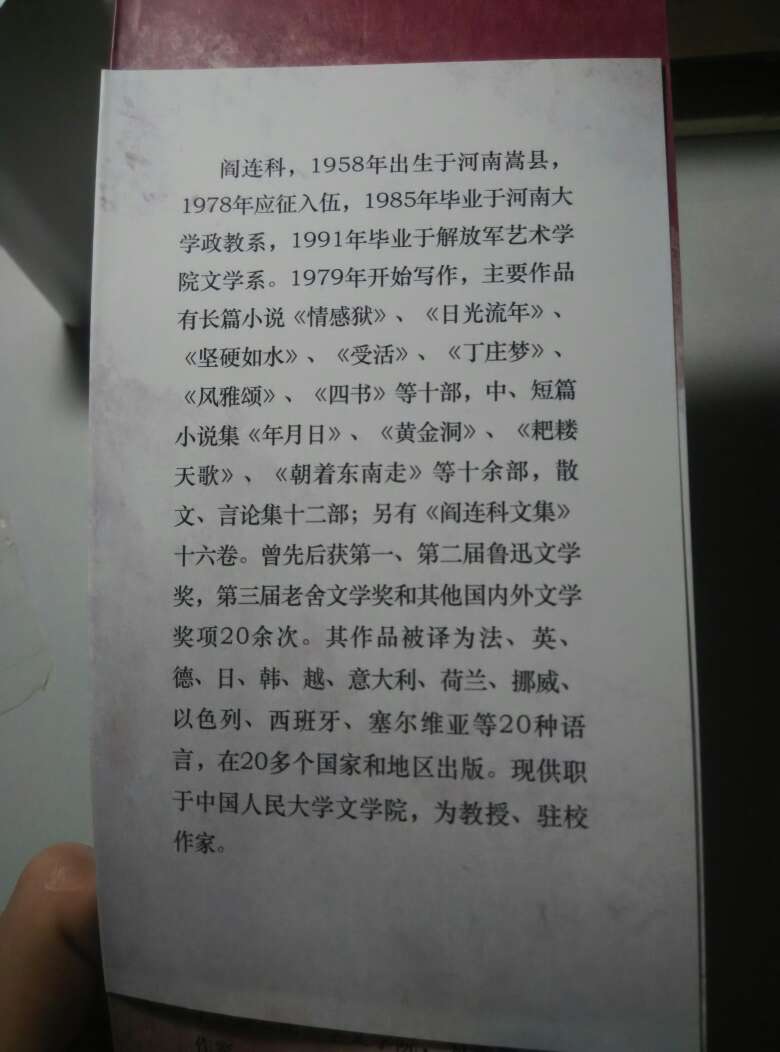 阎连科，1958年出生于河南嵩县，
1978年应征入伍，1985年毕业于河南大
学政教系，1991年毕业于解放军艺术学
院文学系。1979年开始写作，主要作品
有长篇小说《情感狱》、《日光流年》、
《坚硬如水》、《受活》、《丁庄梦》、
《风雅颂》、《四书》等十部，中、短篇
小说集《年月日》、《黄金洞》、《耙耧
天歌》、《朝着东南走》等十余部，散
文、言论集十二部；另有《阎连科文集》
十六卷。曾先后获第一、第二届鲁迅文学
奖，第三届老舍文学奖和其他国内外文学
奖项20余次。其作品被译为法、英、
德、日、韩、越、意大利、荷兰、挪威、
以色列、西班牙、塞尔维亚等20种语
言，在20多个国家和地区出版。现供职
于中国人民大学文学院，为教授、驻校
作家。